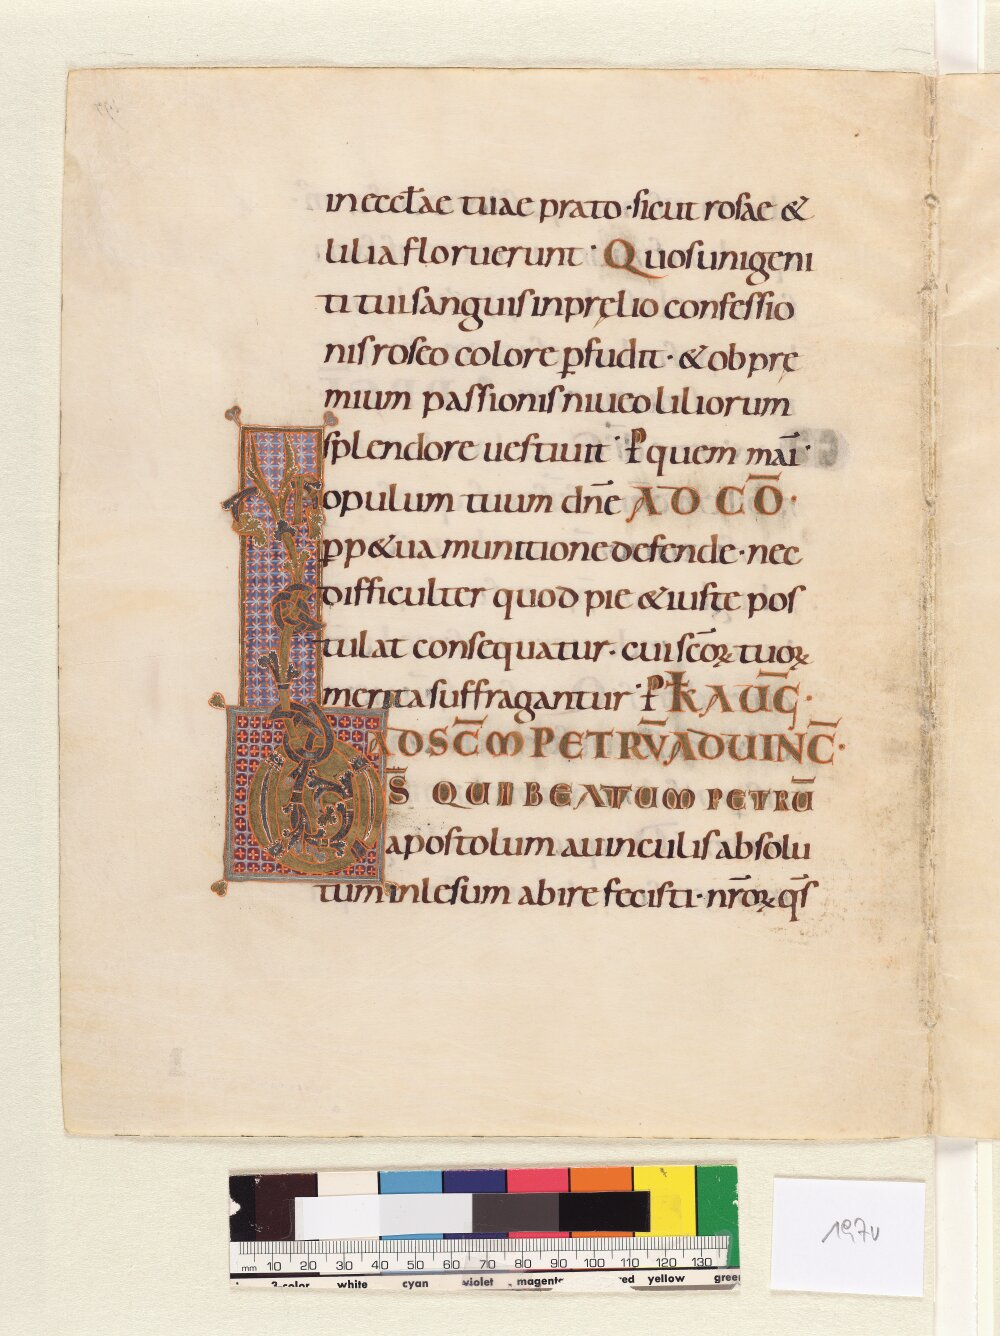 in eccl̄ae tuae prato · sicut rosae &
lilia floruerunt · Quos unigeni
ti tui sanguis in pręlio confessio
nis roseo colore ꝑfudit · & ob prę
mium passionis niueo liliorum
splendore uestiuit · P̄ quem maī ·
Populum tuum dn̄e AD CŌ ·
ꝑp&ua munitione defende · nec
difficulter quod pie & iuste pos
tulat consequatur · cui sc̄oꝝ tuoꝝ
merita suffragantur · P̄ K̄ AUḠ ·
AD SC̄M PETRV̄ AD UINC̄ ·
DS̄ QUI BEATUM PETRŪ
apostolum a uinculis absolu
tum inlesum abire fecisti · nr̄oꝝ qs̄
197v
mm 10 20 30 40 50 60 70 80 90 100 110 120 130
3-color white cyan violet magenta red yellow green